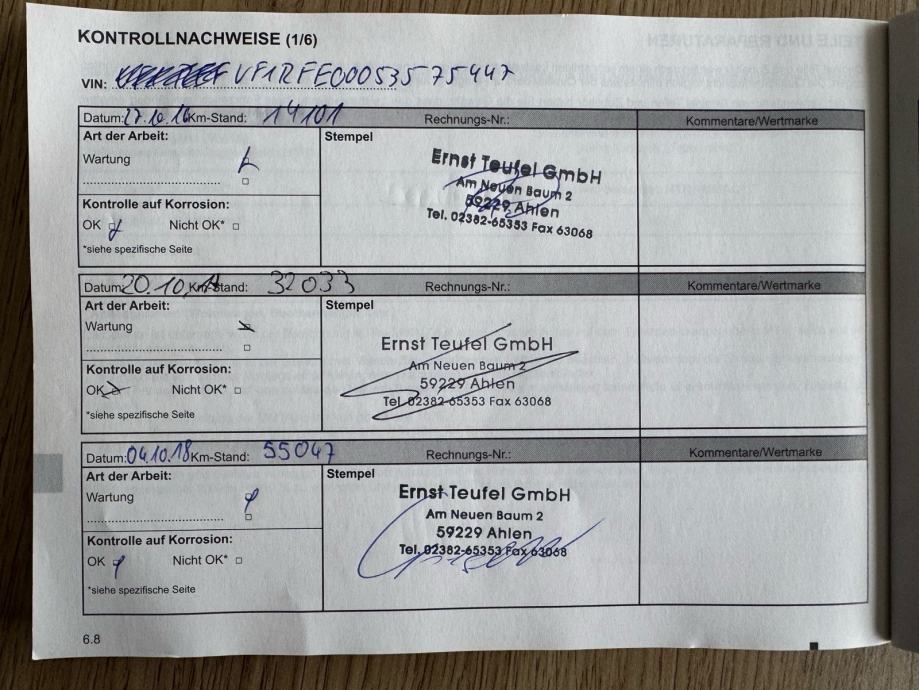 KONTROLLNACHWEISE (1/6)
VIN: VF1RFE00053575447
Datum: 27.10.16 Km-Stand: 14101 Rechnungs-Nr.: Kommentare/Wertmarke
Art der Arbeit: Stempel
Wartung
Kontrolle auf Korrosion:
OK Nicht OK*
*siehe spezifische Seite
Ernst Teufel GmbH
Am Neuen Baum 2
59229 Ahlen
Tel. 02382-65353 Fax 63068
Datum: 20.10.17 Km-Stand: 32033 Rechnungs-Nr.: Kommentare/Wertmarke
Art der Arbeit: Stempel
Wartung
Kontrolle auf Korrosion:
OK Nicht OK*
*siehe spezifische Seite
Ernst Teufel GmbH
Am Neuen Baum 2
59229 Ahlen
Tel. 02382-65353 Fax 63068
Datum: 04.10.18 Km-Stand: 55047 Rechnungs-Nr.: Kommentare/Wertmarke
Art der Arbeit: Stempel
Wartung
Kontrolle auf Korrosion:
OK Nicht OK*
*siehe spezifische Seite
Ernst Teufel GmbH
Am Neuen Baum 2
59229 Ahlen
Tel. 02382-65353 Fax 63068
6.8